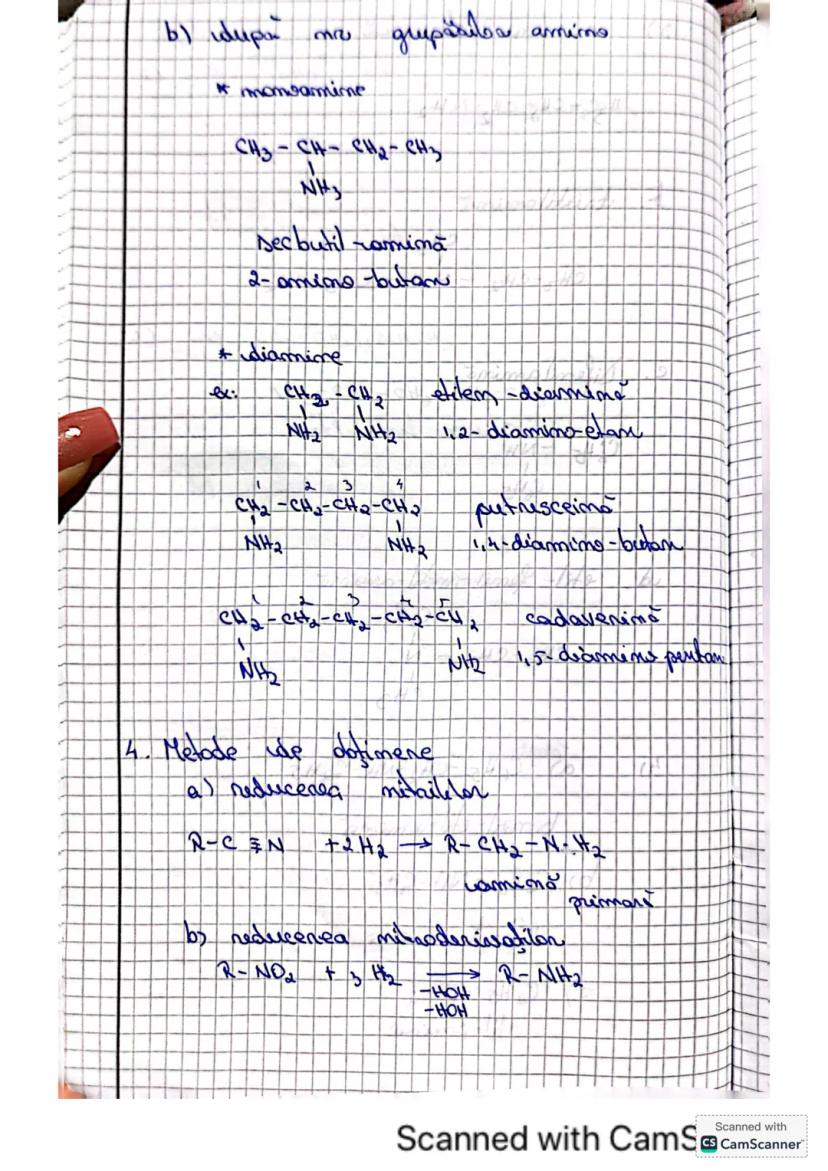 b) după nr grupărilor amino
* monoamine
CH3 - CH - CH2 - CH3
NH3
secbutil-amină
2-amino-butan
* diamine
ex: CH2 - CH2 etilen-diamină
NH2 NH2 1,2-diamino-etan
1 2 3 4
CH2 - CH2 - CH2 - CH2 putresceină
NH2 NH2 1,4-diamino-butan
1 2 3 4 5
CH2 - CH2 - CH2 - CH2 - CH2 cadaverină
NH2 NH2 1,5-diamino pentan
4. Metode de obținere
a) reducerea nitrililor
R-C≡N + 2H2 → R-CH2-N-H2
amină
primară
b) reducerea nitroderivaților
R-NO2 + 3H2 → R-NH2
-HOH
-HOH
Scanned with CamS
Scanned with
CS CamScanner